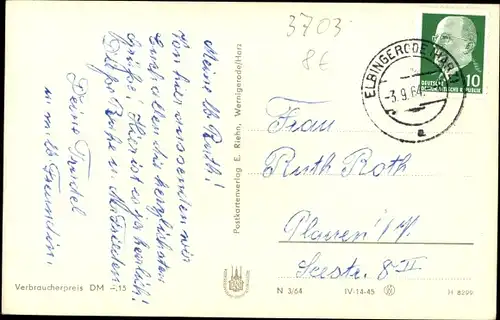 3703
8€
ELBINGERODE (HARZ)
-3.9.64.
a
10
DEUTSCHE
DEMOKRATISCHE REPUBLIK
Meine lb. Ruth!
Von hier aus senden wir
Euch allen die herzlichsten
Grüße! Hier ist es ja herrlich!
Ruhe u.
Deine Trudel
u. m. lb. Freundin.
Postkartenverlag E. Riehn, Wernigerode/Harz
Frau
Ruth Roth
Plauen i/V.
Seestr. 8 II
Verbraucherpreis DM -,15
N 3/64
IV-14-45
H 8299